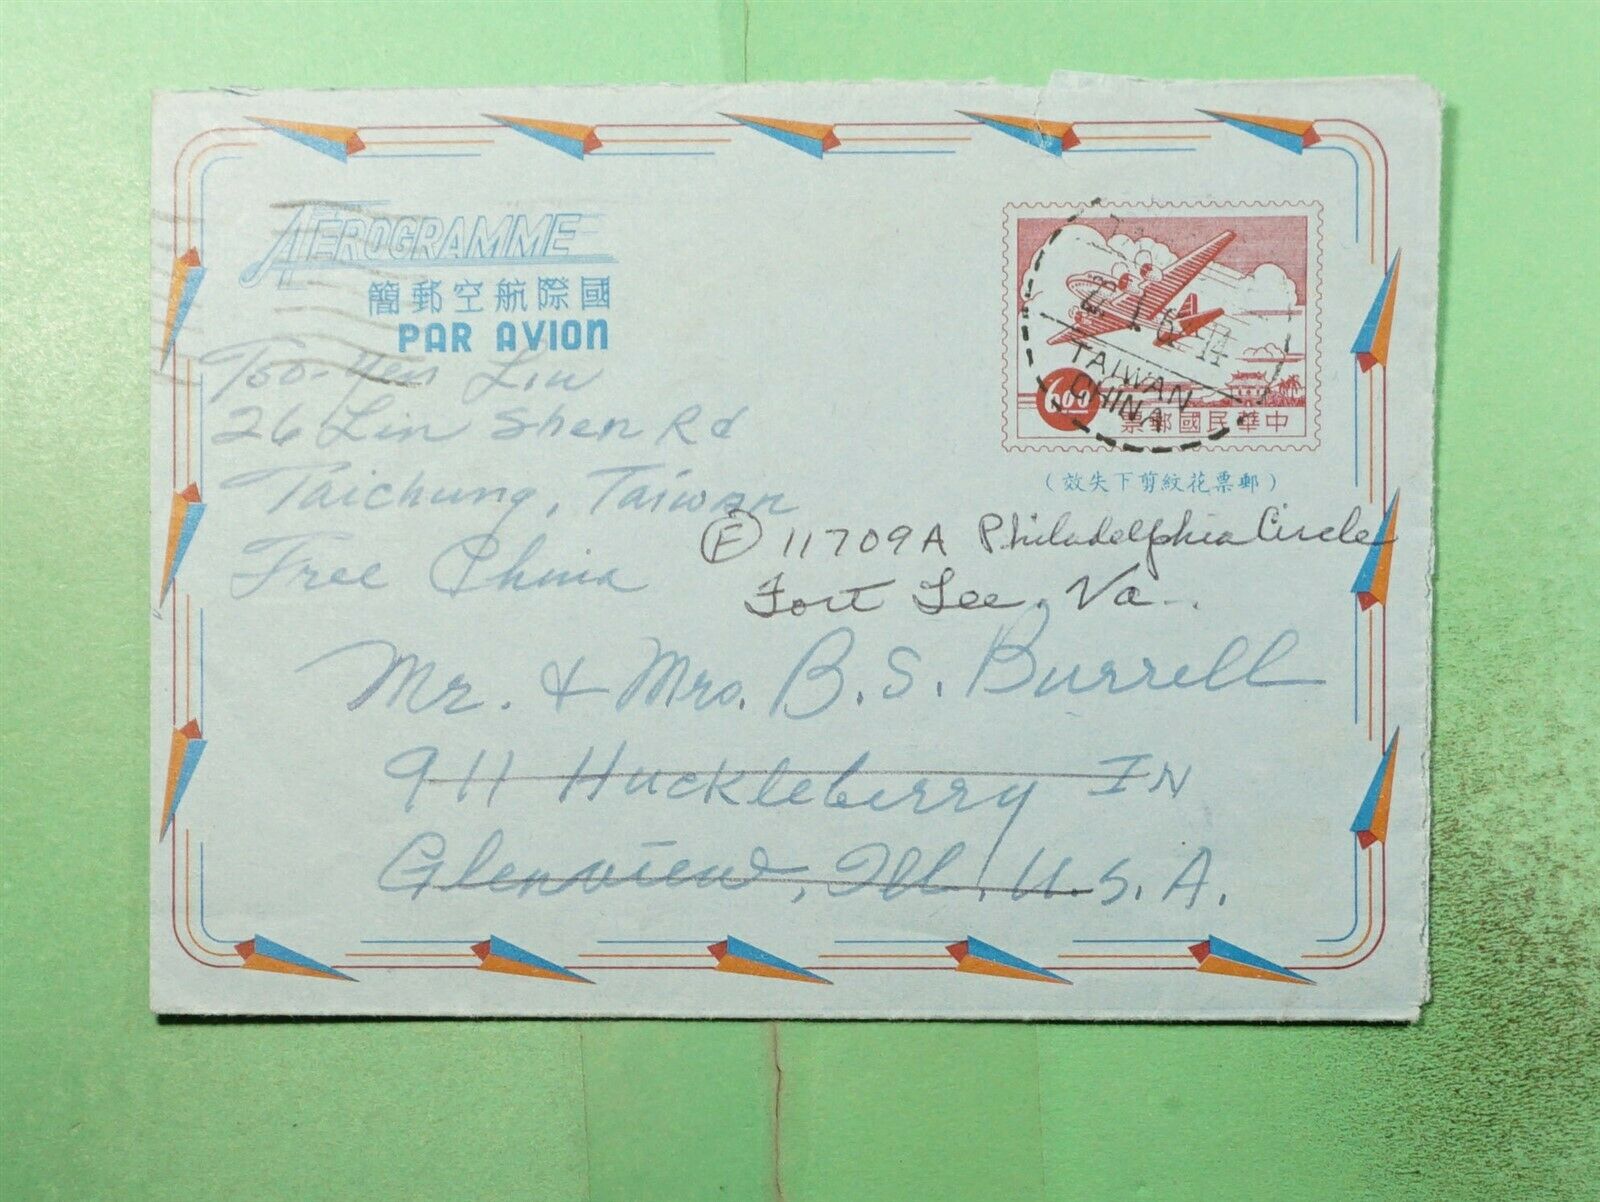 AEROGRAMME
國際航空郵簡
PAR AVION
Too-Yen Liu
26 Lin Shen Rd
Taichung, Taiwan
Free China
6.00
中華民國郵票
TAIWAN
CHINA
(郵票花紋剪下失效)
F 11709A Philadelphia Circle
Fort Lee, Va.
Mr. & Mrs. B. S. Burrell
911 Huckleberry IN
Glenview, Ill, U.S.A.